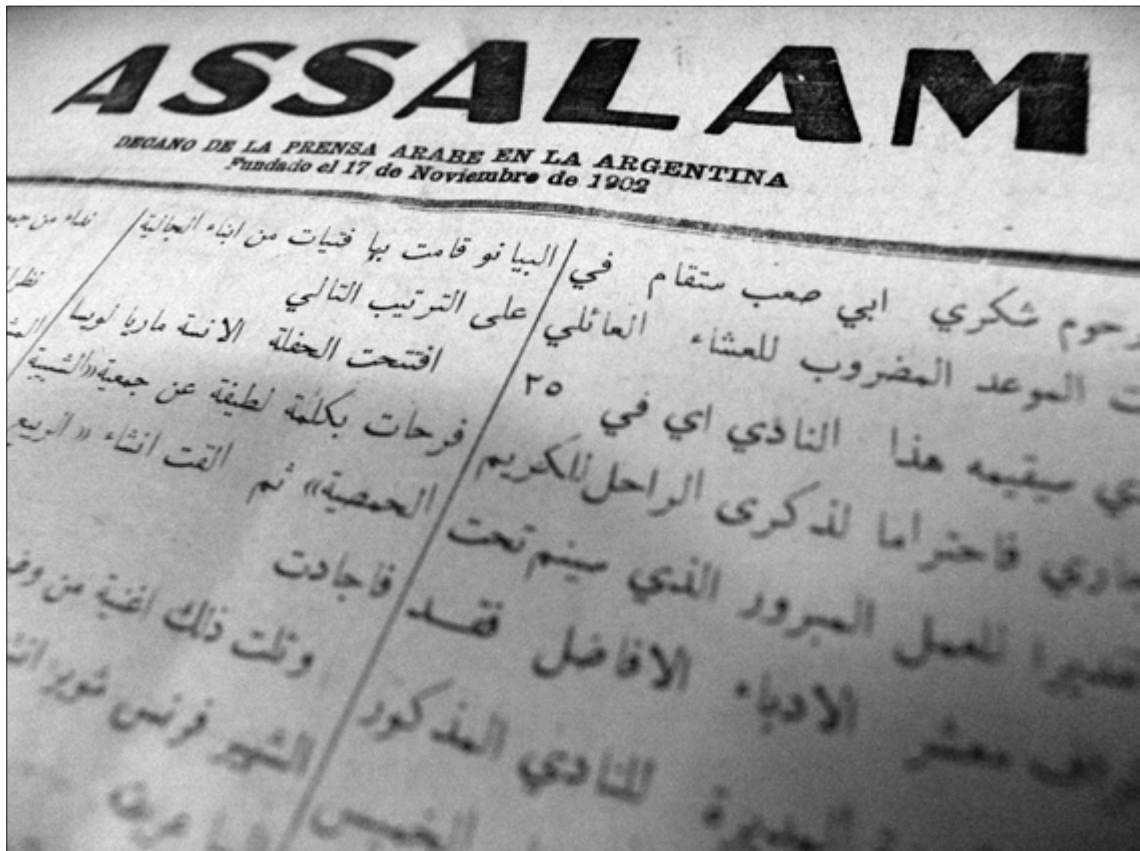 ASSALAM
DECANO DE LA PRENSA ARABE EN LA ARGENTINA
Fundado el 17 de Noviembre de 1902
شكري ابي صعب ستقام في
الموعد المضروب للعشاء العائلي
سيقيمه هذا النادي اي في ٢٥
فاحتراما لذكرى الراحل الكريم
للعمل المبرور الذي سيتم تحت
معشر الادباء الافاضل فقد
للنادي المذكور
الخميس
البيانو قامت بها فتيات من ابناء الجالية
على الترتيب التالي
افتتحت الحفلة الانسة ماريا لويسا
فرحات بكلمة لطيفة عن جمعية «الشبيبة
الحمصية» ثم القت انشاء «الربيع
فاجادت
وتلت ذلك اغنية من
الشهير فرنس شوبر
نداء من